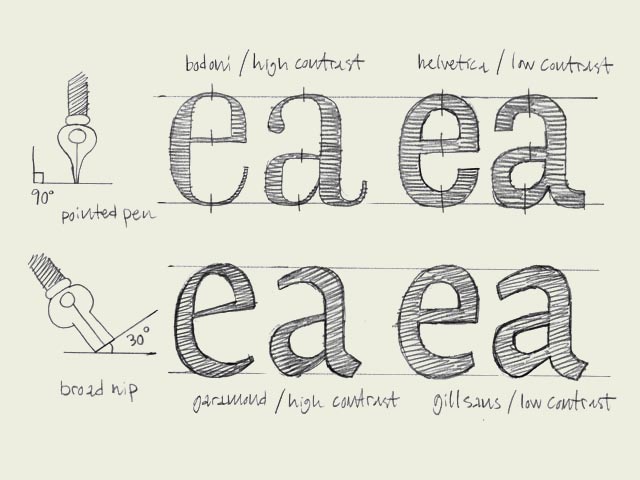 bodoni / high contrast
helvetica / low contrast
ea ea
90°
pointed pen
ea ea
30°
broad nip
garamond / high contrast
gill sans / low contrast